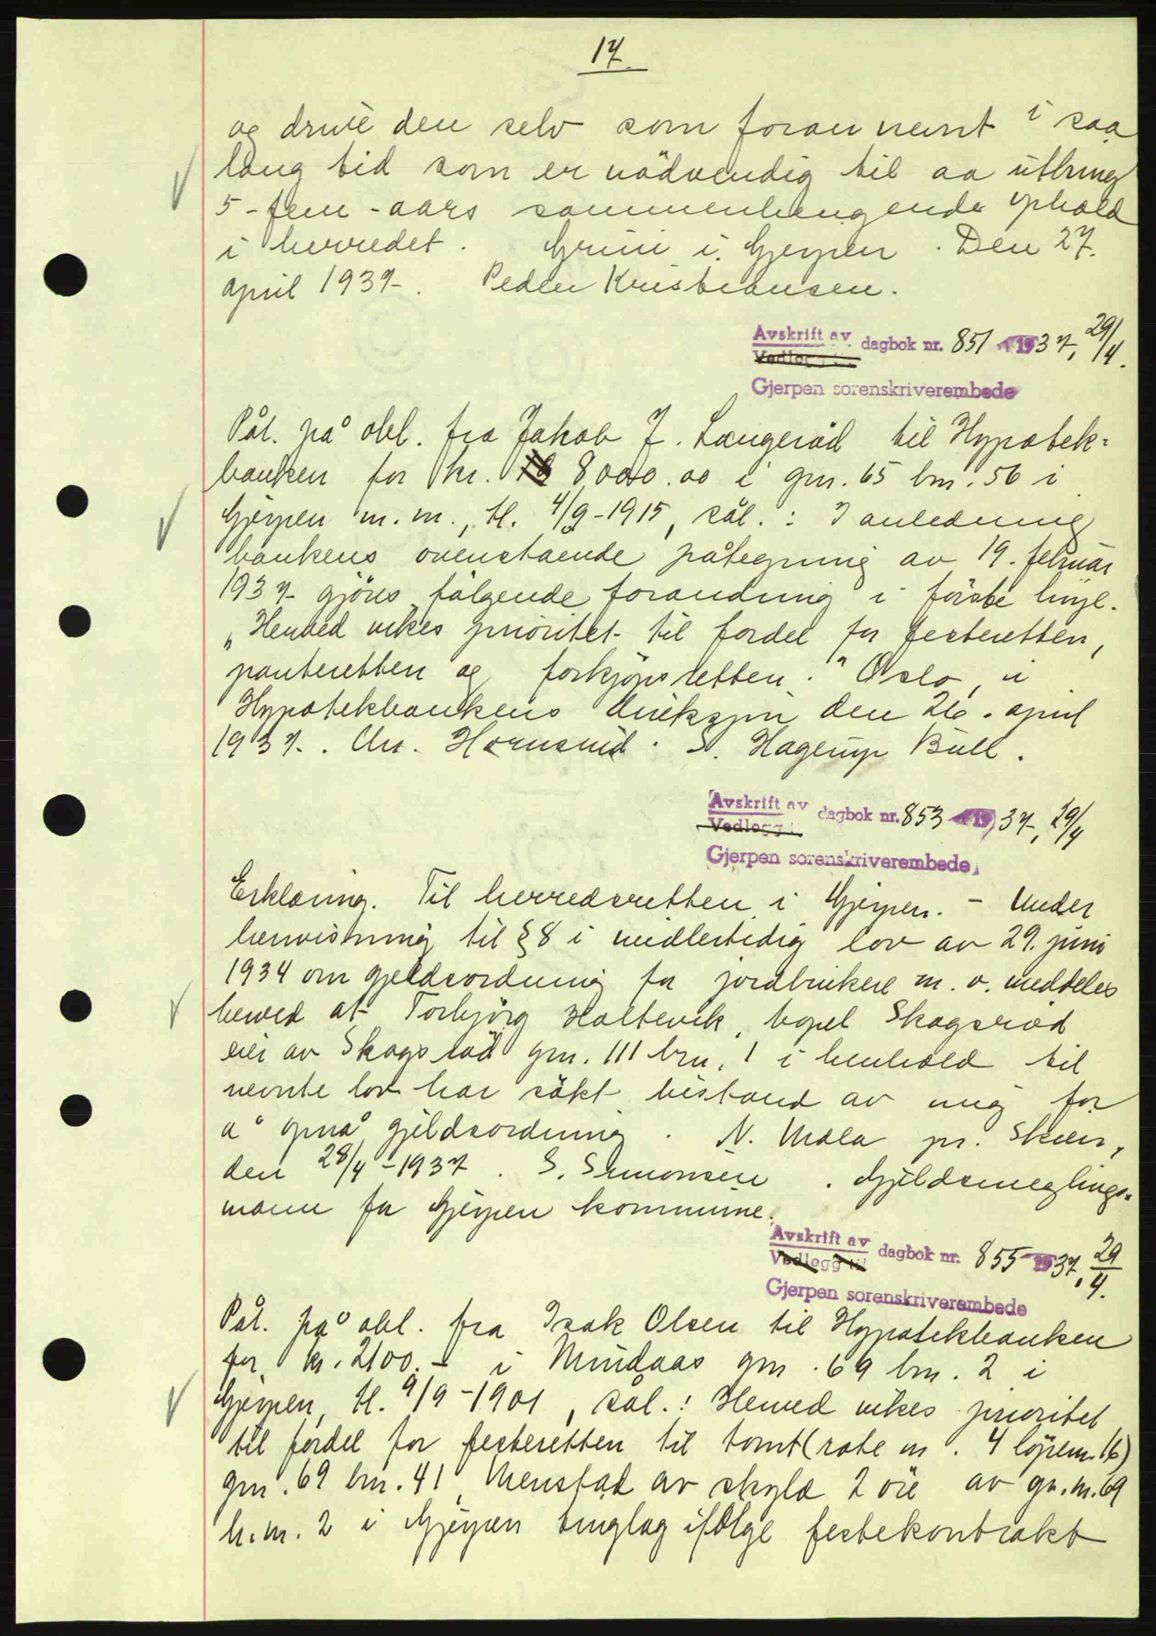 17.
og drive den selv som forannevnt i saa
lang tid som er nödvendig til aa utbringe
5-fem-aars sammenhengende ophold
i herredet. Grini i Gjerpen. Den 27.
april 1937. Peder Kristiansen.
Avskrift av dagbok nr. 851 1937, 29/4.
Vedlegg til
Gjerpen sorenskriverembede
Påt. på obl. fra Jakob J. Langeråd til Hypotek-
banken for kr. 8000.00 i gnr. 65 bnr. 56 i
Gjerpen m.m., tl. 4/9-1915, sål.: I anledning
bankens ovenstående påtegning av 19. februar
1937 gjöres fölgende forandring i förste linje.
"Herved vikes prioritet til fordel for festeretten,
panteretten og forkjöpsretten." Oslo, i
Hypotekbankens direksjon den 26. april
1937. Chr. Hornsrud. S. Hagerup Bull.
Avskrift av dagbok nr. 853 1937, 29/4
Vedlegg
Gjerpen sorenskriverembede
Erklæring. Til herredsretten i Gjerpen. - Under
henvisning til § 8 i midlertidig lov av 29. juni
1934 om gjeldsordning for jordbrukere m. v. meddeles
herved at Torbjörg Holtevik, bopel Skogsråd
eier av Skogsråd gnr. 111 bnr. 1 i henhold til
nevnte lov har sökt bistand av mig for
å opnå gjeldsordning. N. Mæla pr. Skien,
den 28/4-1937. S. Simonsen. Gjeldsmeglings-
mann for Gjerpen kommune.
Avskrift av dagbok nr. 855 1937, 29/4.
Vedlegg til
Gjerpen sorenskriverembede
Påt. på obl. fra Isak Olsen til Hypotekbanken
for kr. 2100.- i Mindaas gnr. 69 bnr. 2 i
Gjerpen, tl. 9/9-1901, sål.: Herved vikes prioritet
til fordel for festeretten til tomt (rode nr. 4 löpenr. 16)
gnr. 69 bnr. 41 Menstad av skyld 2 öre av gr.nr. 69
b.nr. 2 i Gjerpen tinglag ifölge festekontrakt